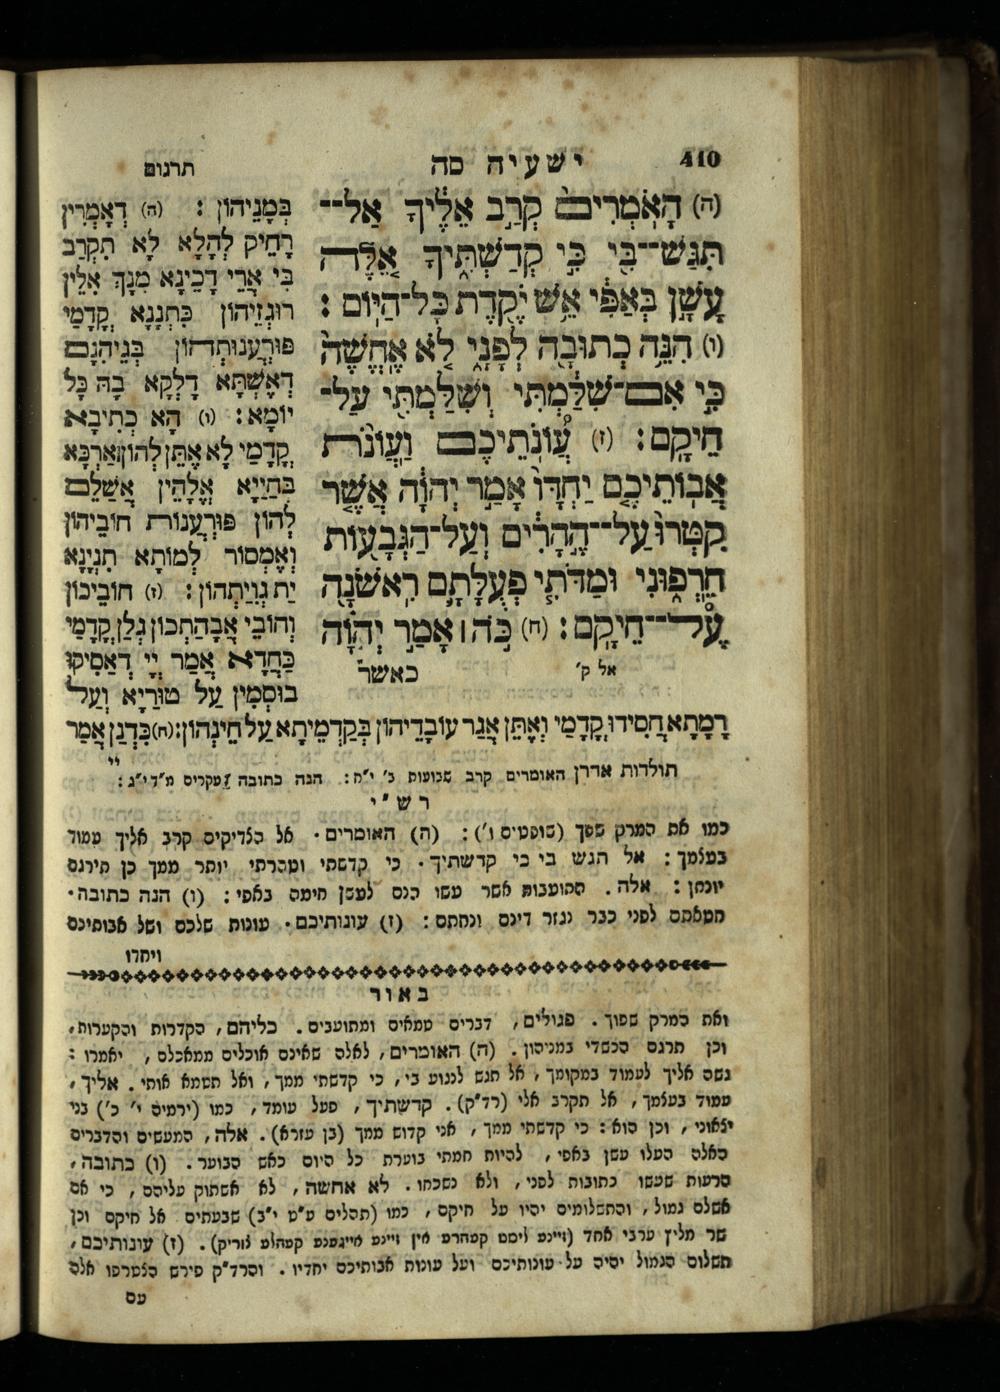 410
ישעיה סה
תרגום
(ה) הָאֹמְרִים֙ קְרַ֣ב אֵלֶ֔יךָ אַל־
תִּגַּשׁ־בִּ֖י כִּ֣י קְדַשְׁתִּ֑יךָ אֵ֚לֶּה
עָשָׁ֣ן בְּאַפִּ֔י אֵ֥שׁ יֹקֶ֖דֶת כָּל־הַיּֽוֹם :
(ו) הִנֵּ֥ה כְתוּבָ֖ה לְפָנָ֑י לֹ֤א אֶֽחֱשֶׂה֙
כִּ֣י אִם־שִׁלַּ֔מְתִּי וְשִׁלַּמְתִּ֖י עַל־
חֵיקָֽם: (ז) עֲ֠וֹנֹתֵיכֶם וַעֲוֹנֹ֨ת
אֲבוֹתֵיכֶ֤ם יַחְדָּו֙ אָמַ֣ר יְהֹוָ֔ה אֲשֶׁ֤ר
קִטְּרוּ֙ עַל־הֶ֣הָרִ֔ים וְעַל־הַגְּבָע֖וֹת
חֵרְפ֑וּנִי וּמַדֹּתִ֧י פְעֻלָּתָ֛ם רִֽאשֹׁנָ֖ה
עַל־חֵיקָֽם: (ח) כֹּ֣ה ׀ אָמַ֣ר יְהֹוָ֗ה
אל ק' כאשר
בְּמָנֵיהוֹן : (ה) דְאָמְרִין
רָחֵיק לְהָלָא לָא תִקְרַב
בִּי אֲרֵי דָכֵינָא מִנָךְ אִלֵין
רוּגְזֵיהוֹן כִּתְנָנָא קֳדָמַי
פּוּרְעֲנוּתְהוֹן בְּגֵיהִנָם
דְאֶשְׁתָּא דָלְקָא בָהּ כָּל
יוֹמָא : (ו) הָא כְתִיבָא
קֳדָמַי לָא אֶתֵּן לְהוֹן אַרְכָּא
בְּחַיַיָא אֱלָהֵין אֲשַׁלֵם
לְהוֹן פּוּרְעֲנוּת חוֹבֵיהוֹן
וְאֶמְסוֹר לְמוֹתָא תִנְיָנָא
יַת גְוִיַתְהוֹן : (ז) חוֹבֵיכוֹן
וְחוֹבֵי אֲבָהַתְכוֹן גְלַן קֳדָמַי
כַּחֲדָא אֲמַר יְיָ דְאַסִיקוּ
בוּסְמִין עַל טוּרַיָא וְעַל
רָמָתָא חֲסִידוּ קֳדָמַי וְאֶתֵּן אֲגַר עוֹבָדֵיהוֹן בְּקַדְמֵיתָא עַל חֵינְהוֹן: (ח) כִּדְנַן אֲמַר
יי
תולדות אהרן האומרים קרב שבועות ב' י"ח: הנה כתובה עקרים מ"ד י"ג :
רש"י
כמו את המרק שפך (שופטים ו'): (ה) האומרים . אל הצדיקים קרב אליך עמוד
בעצמך : אל תגש בי כי קדשתיך . כי קדשתי וטהרתי יותר ממך כן תירגם
יונתן : אלה . התועבות אשר עשו הנם לעשן חימה באפי : (ו) הנה כתובה .
חטאתם לפני כבר נגזר דינם ונחתם : (ז) עונותיכם . עונות שלכם ושל אבותיכם
ויחדו
באור
ואת המרק שפוך . פגולים, דברים טמאים ומתועבים . כליהם, הקדרות והקערות,
וכן תרגם הכשדי במניהון . (ה) האומרים, לאלה שאינם אוכלים ממאכלם, יאמרו :
גשה אליך לעמוד במקומך, אל תגש לנגוע בי, כי קדשתי ממך, ואל תטמא אותי . אליך,
עמוד בעצמך, אל תקרב אלי (רד"ק). קדשתיך, פעל עומד, כמו (ירמיה י' כ') בני
יצאוני, וכן הוא : כי קדשתי ממך, אני קדוש ממך (בן עזרא). אלה, המעשים והדברים
האלה העלו עשן באפי, להיות חמתי בוערת כל היום כאש הבוער. (ו) כתובה,
הרעות שעשו כתובות לפני, ולא נשכחו. לא אחשה, לא אשתוק עליהם, כי אם
אשלם גמול, והתשלומים יהיו על חיקם, כמו (תהלים ע"ט י"ב) שבעתים אל חיקם וכן
שר מליץ ערבי אחד (זיינע ליסט קעהרע אין זיינע אייגענע קעהלע צוריק). (ז) עונותיכם,
תשלום הגמול יהיה על עונותיכם ועל עונות אבותיכם יחדיו . והרד"ק פירש הצטרפו אלה
עם